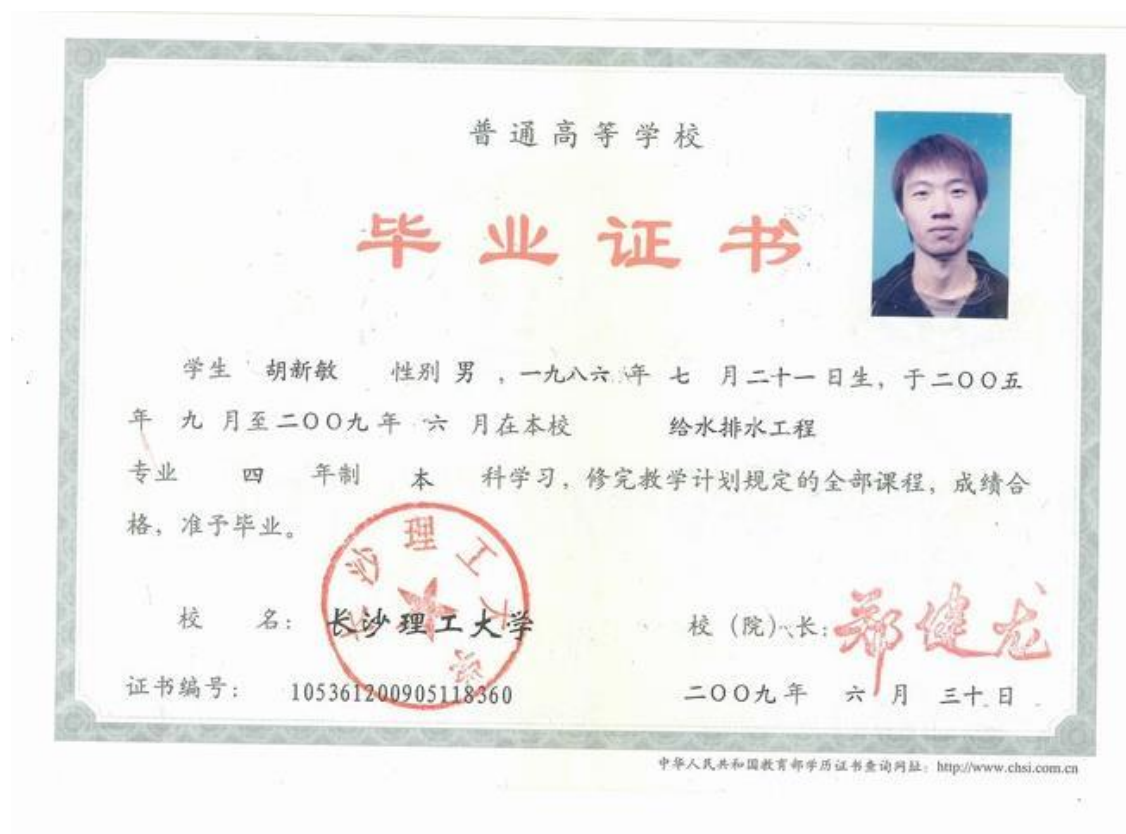 普通高等学校
毕业证书
学生 胡新敏 性别 男 ，一九八六年 七 月二十一日生，于二〇〇五
年 九 月至二〇〇九年 六 月在本校 给水排水工程
专业 四 年制 本 科学习，修完教学计划规定的全部课程，成绩合
格，准予毕业。
长沙理工大学
校 名： 长沙理工大学
校（院）长： 郑健龙
证书编号： 105361200905118360
二〇〇九年 六 月 三十日
中华人民共和国教育部学历证书查询网址：http://www.chsi.com.cn